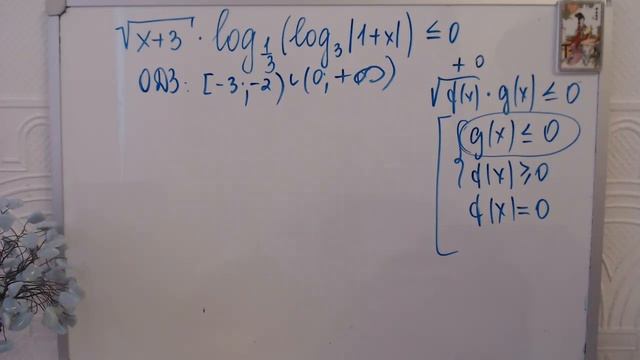 √x+3 · log_{1/3}(log_3|1+x|) ≤ 0
ОДЗ: [-3;-2)∪(0;+∞)
+ 0
√f(x) · g(x) ≤ 0
g(x) ≤ 0
f(x) ≥ 0
f(x) = 0